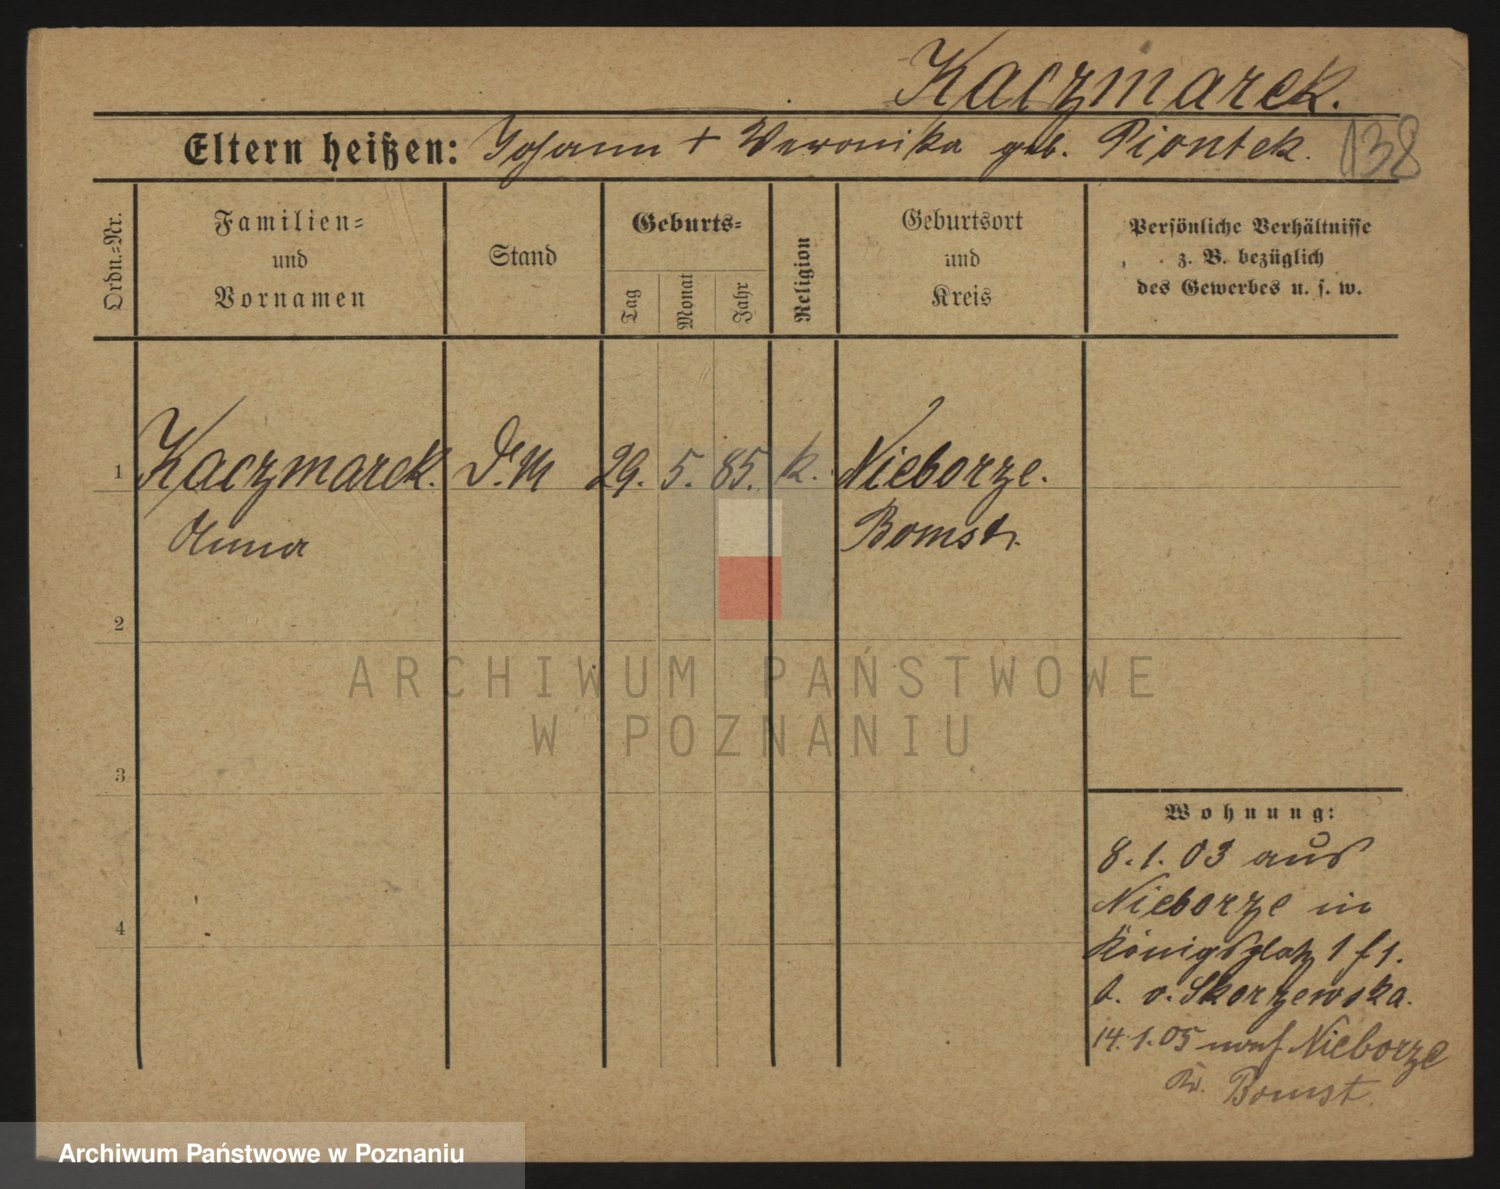 Kaczmarek.
Eltern heißen: Johann + Weronika geb. Piontek.
138
Ordn.=Nr.
Familien=
und
Vornamen
Stand
Geburts=
Tag
Monat
Jahr
Religion
Geburtsort
und
Kreis
Persönliche Verhältnisse
z. B. bezüglich
des Gewerbes u. s. w.
1 Kaczmarek. D. M 29. 5. 85. k. Nieborze.
Anna Bomst.
2
3
4
Wohnung:
8. 1. 03 aus
Nieborze in
Königsplatz 1 f 1.
b. v. Skorzewska.
14. 1. 05 nach Nieborze
Kr. Bomst.
ARCHIWUM PAŃSTWOWE
W POZNANIU
Archiwum Państwowe w Poznaniu